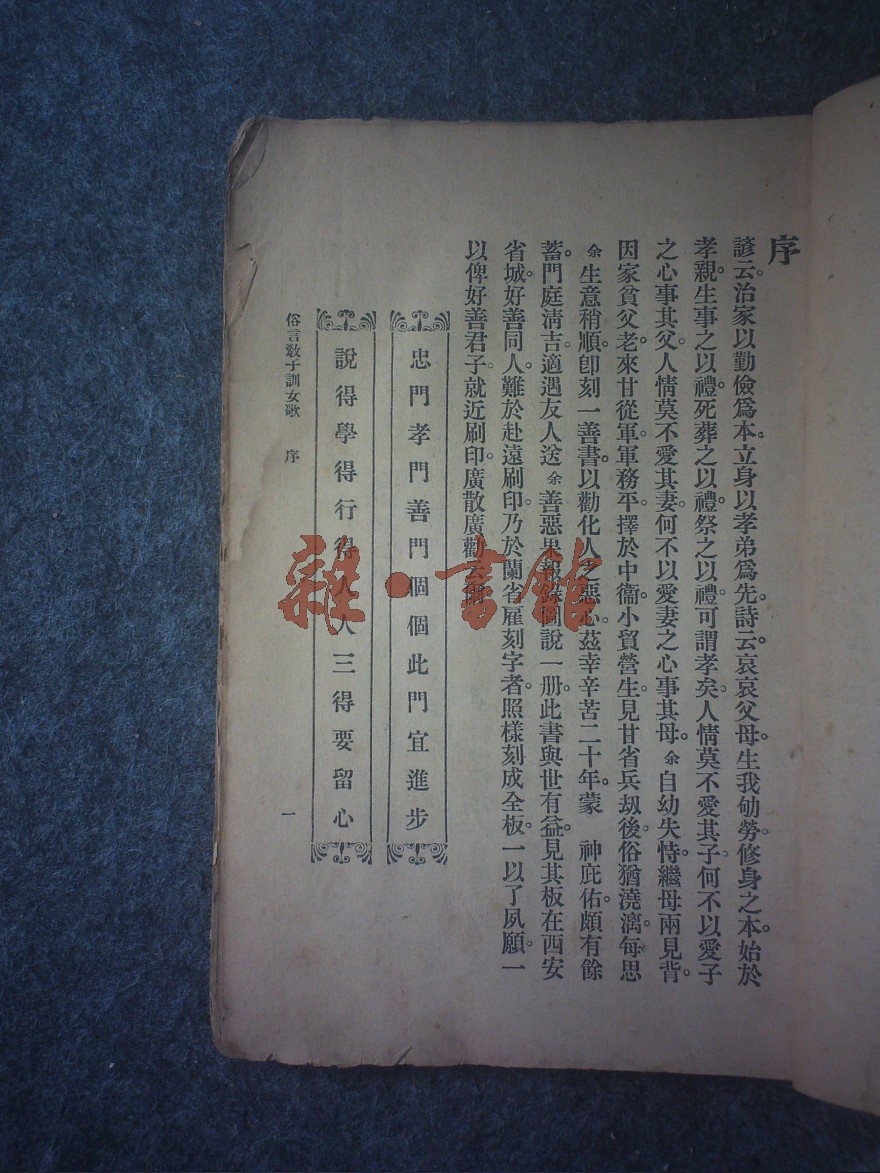 序
諺云。治家以勤儉爲本。立身以孝弟爲先。詩云。哀哀父母。生我劬勞。修身之本。始於
孝親。生事之以禮。死葬之以禮。祭之以禮。可謂孝矣。人情莫不愛其子。何不以愛子
之心事其父。人情莫不愛其妻。何不以愛妻之心事其母。余自幼失恃。繼母兩見背。
因家貧父老。來甘從軍。軍務平。擇於中衞。小貿營生。見甘省兵刼後。俗猶澆漓。每思
余生意稍順。卽刻一善書。以勸化人之惡心。茲幸辛苦二十年。蒙　神庇佑。頗有餘
蓄。門庭淸吉。適遇友人送余善惡果報錄圖說一册。此書與世有益。見其板在西安
省城。好善同人。難於赴遠刷印。乃於蘭省雇刻字者。照樣刻成全板。一以了夙願。一
以俾好善君子。就近刷印。廣散廣勸云爾
忠門孝門善門個個此門宜進步
說得學得行得人人三得要留心
俗言敎子訓女歌　序　一
雜·書館